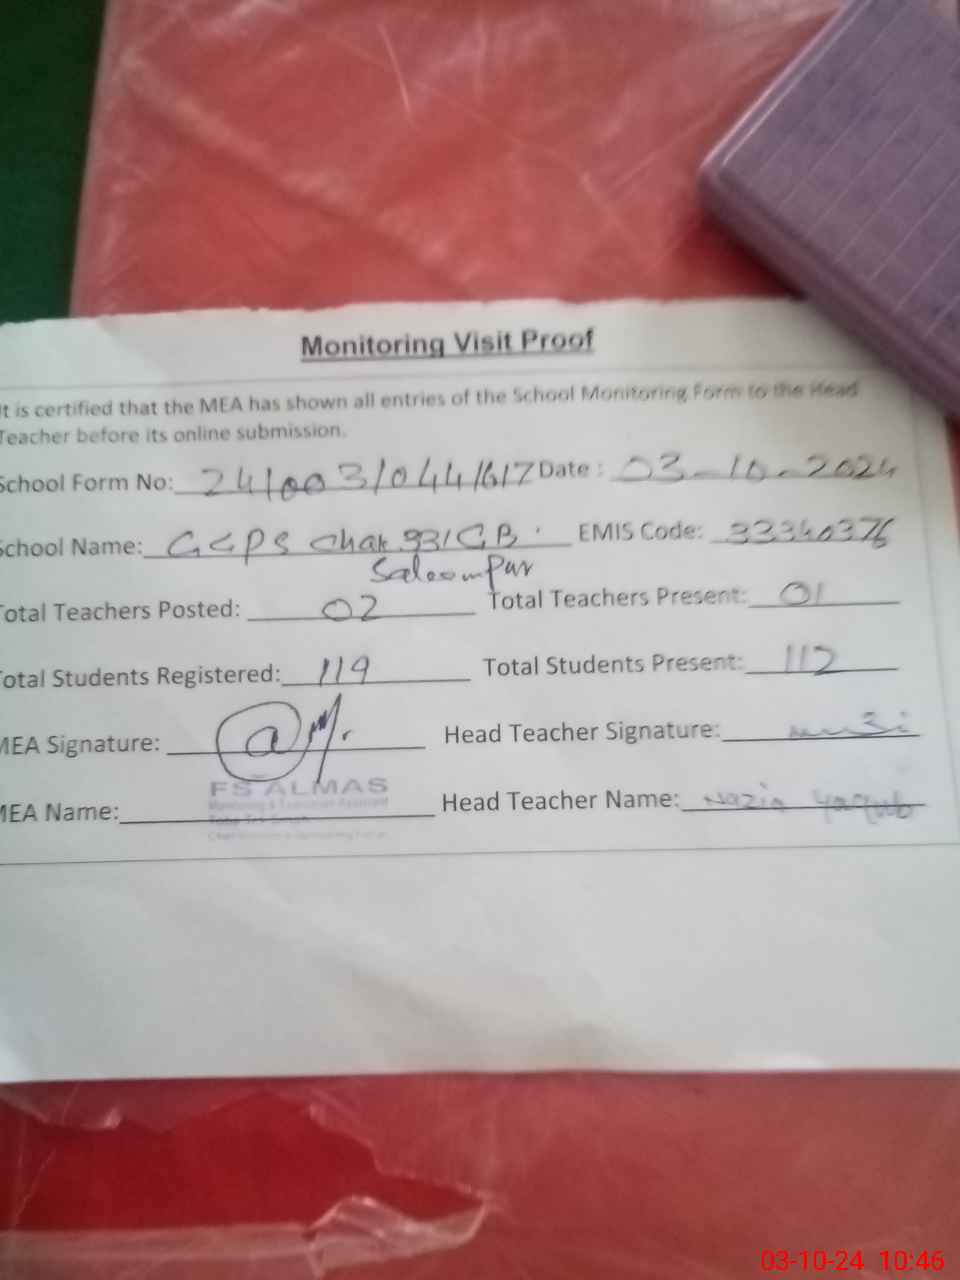 Monitoring Visit Proof
It is certified that the MEA has shown all entries of the School Monitoring Form to the Head
Teacher before its online submission.
School Form No: 241003/044/617 Date : 03-10-2024
School Name: GGPS Chak 331GB EMIS Code: 33340376
Saleempur
Total Teachers Posted: 02 Total Teachers Present: 01
Total Students Registered: 119 Total Students Present: 112
MEA Signature: Head Teacher Signature:
FS ALMAS
Monitoring & Evaluation Assistant
MEA Name: Head Teacher Name: Nazia Yaqub
03-10-24 10:46